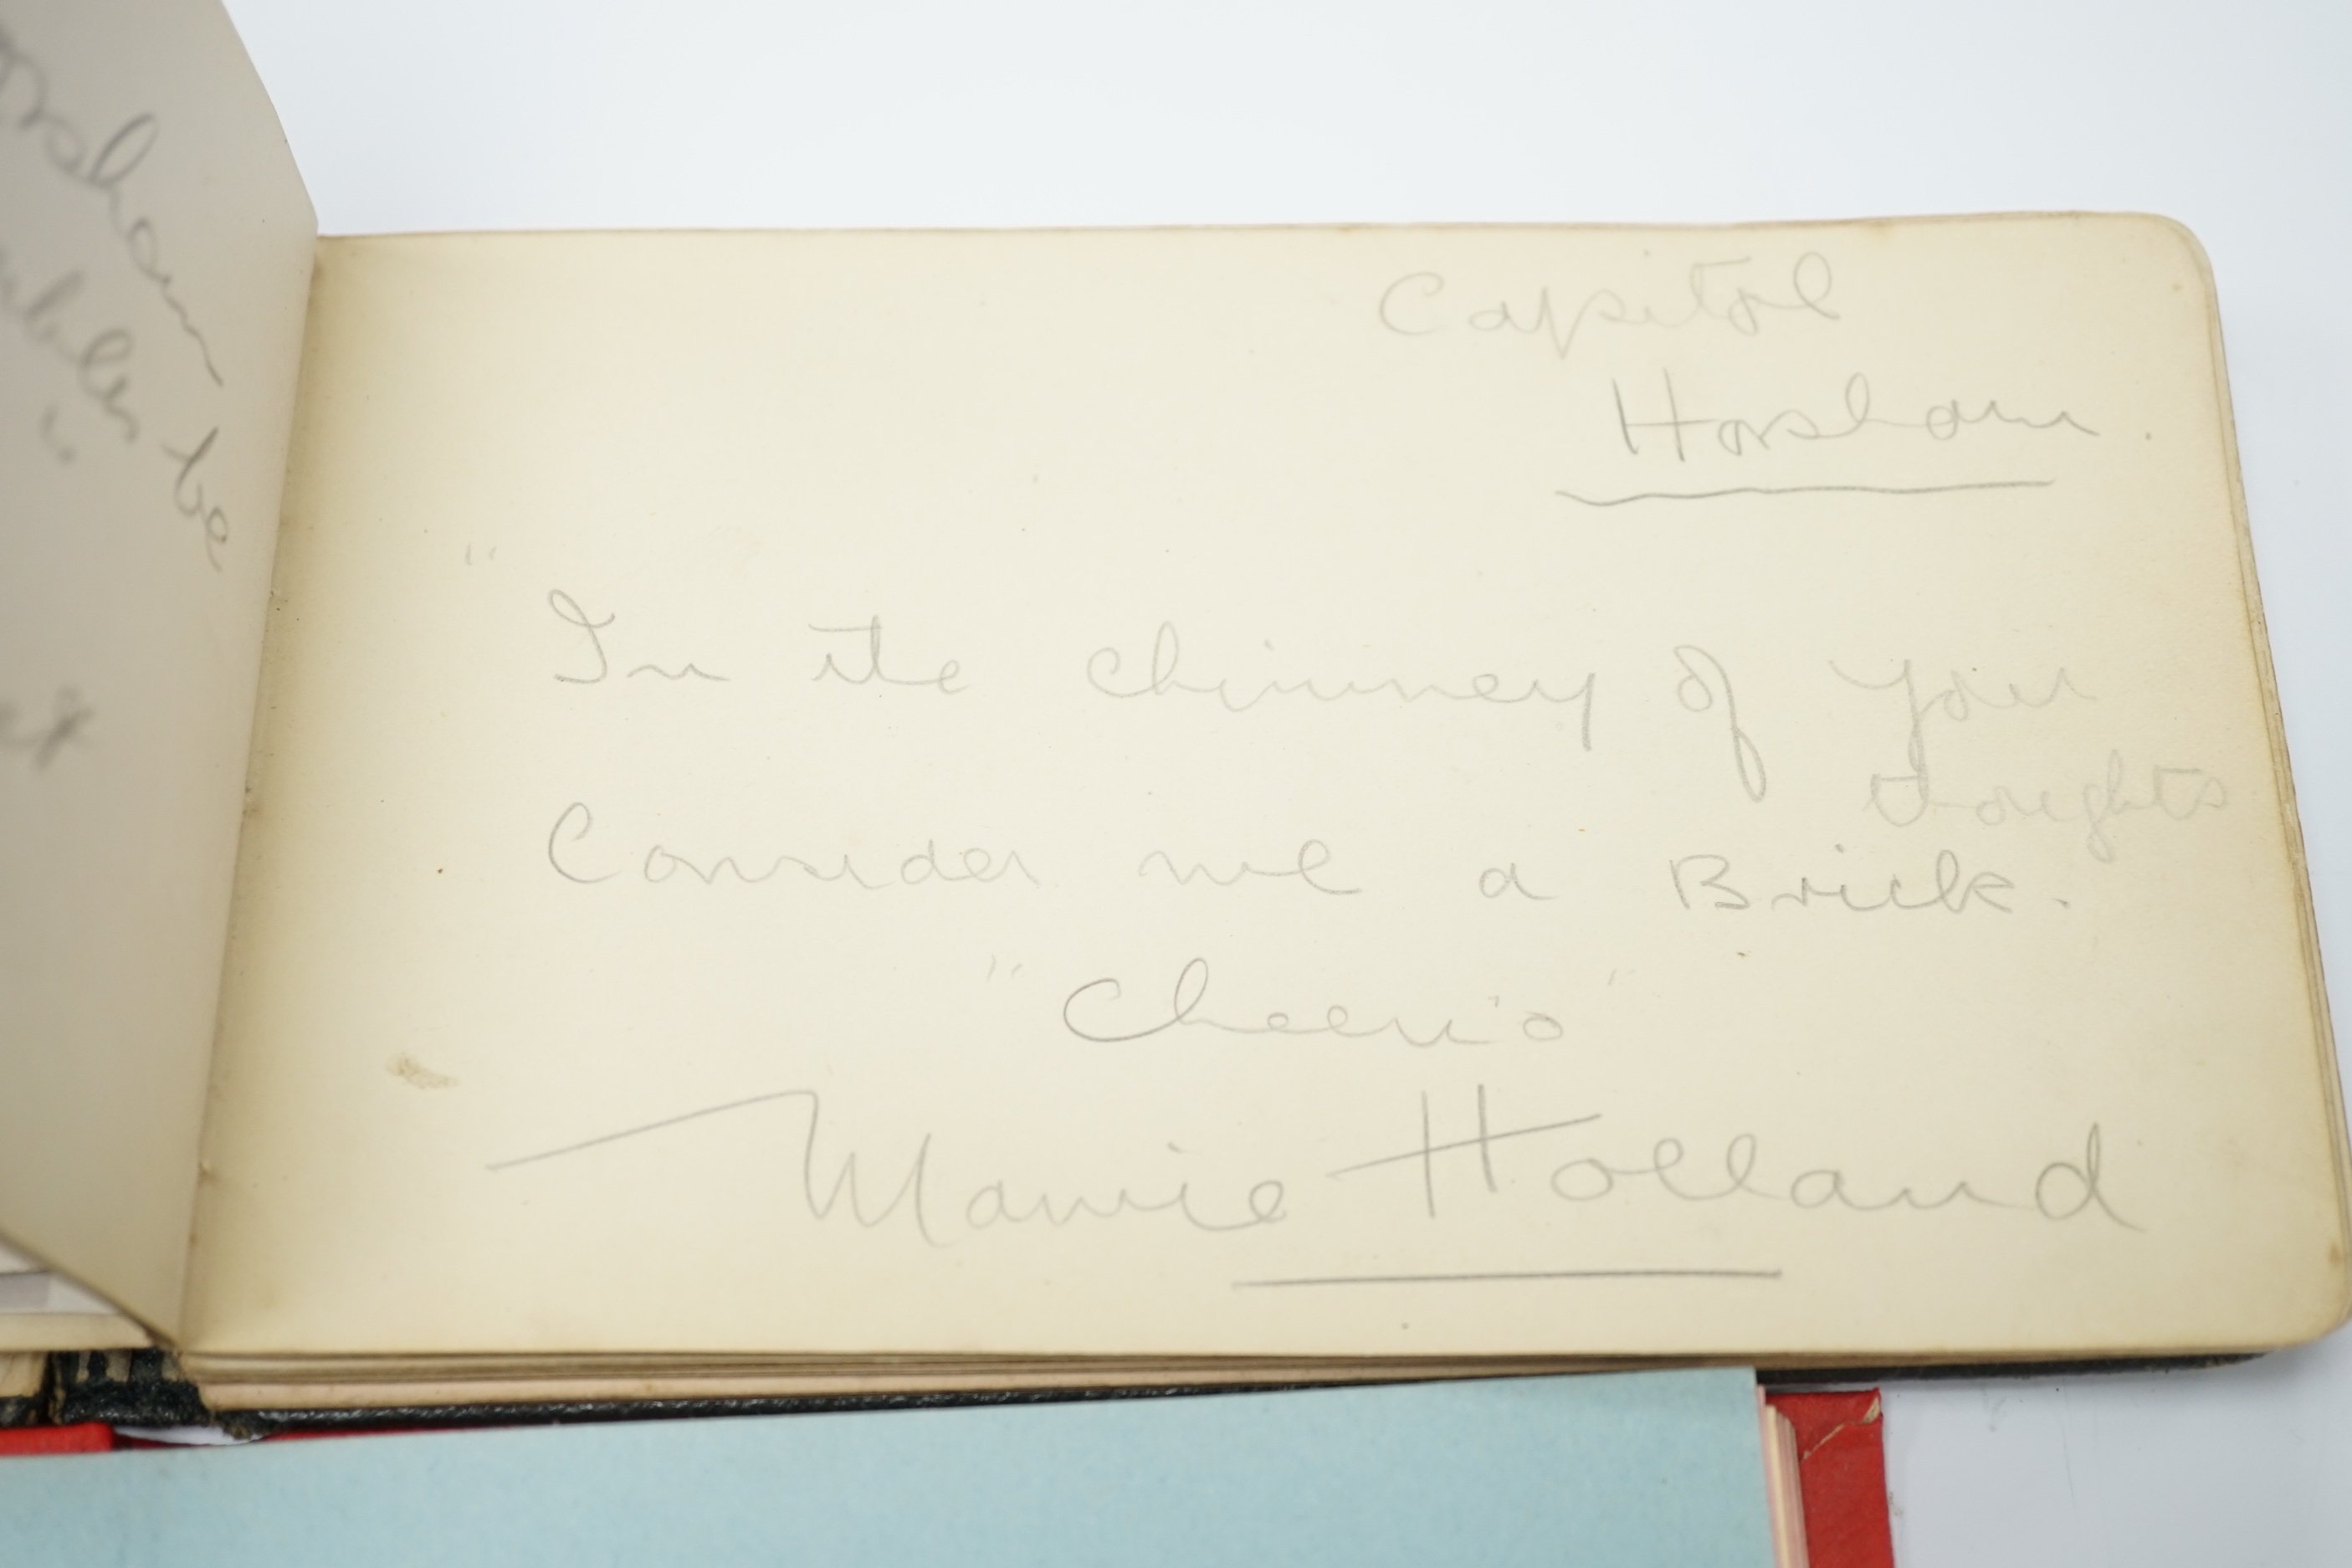 Capitol
Horsham.
"
In the chimney of your
thoughts
Consider me a Brick.
"Cheerio"
Mamie Holland
be